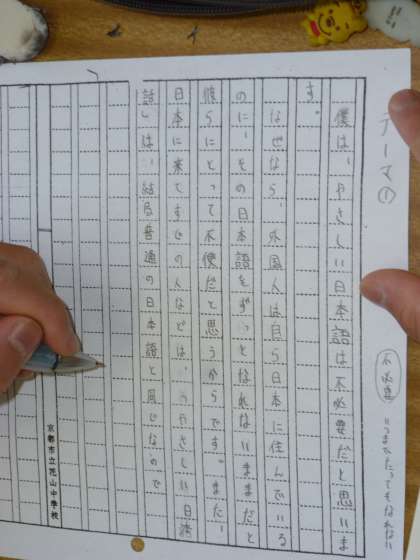 テーマ①
不必要
いつまでたってもなれない
僕は、やさしい日本語は不必要だと思いま
す。
なぜなら、外国人は自ら日本に住んでいる
のに、その日本語をずっとなれないままだと
彼らにとって不便だと思うからです。また、
日本に来てすぐの人などは、「やさしい日本
語」は、結局普通の日本語と同じなので
京都市立花山中学校